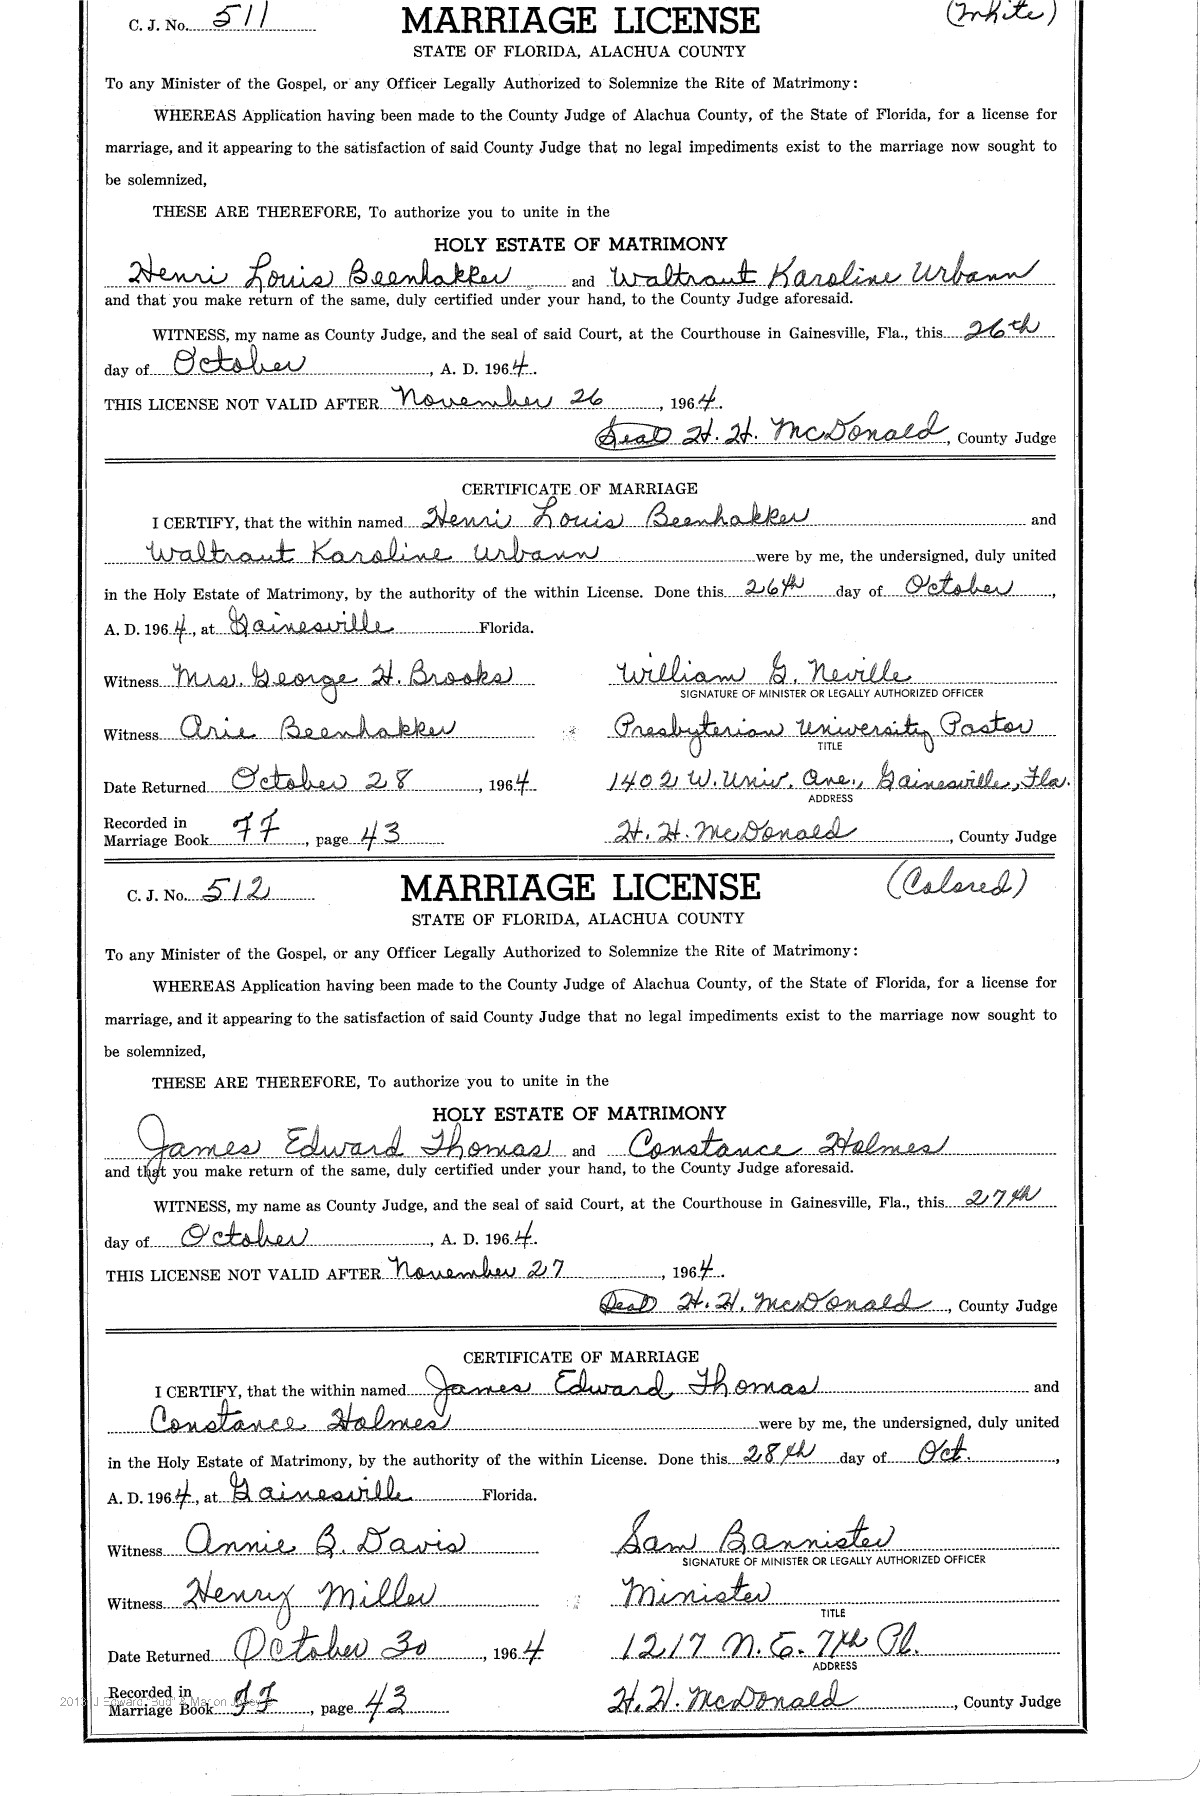 C. J. No. 511 MARRIAGE LICENSE (White)
STATE OF FLORIDA, ALACHUA COUNTY
To any Minister of the Gospel, or any Officer Legally Authorized to Solemnize the Rite of Matrimony:
WHEREAS Application having been made to the County Judge of Alachua County, of the State of Florida, for a license for
marriage, and it appearing to the satisfaction of said County Judge that no legal impediments exist to the marriage now sought to
be solemnized,
THESE ARE THEREFORE, To authorize you to unite in the
HOLY ESTATE OF MATRIMONY
Henri Louis Beenhakker and Waltraut Karoline Urbann
and that you make return of the same, duly certified under your hand, to the County Judge aforesaid.
WITNESS, my name as County Judge, and the seal of said Court, at the Courthouse in Gainesville, Fla., this 26th
day of October, A. D. 1964.
THIS LICENSE NOT VALID AFTER November 26, 1964.
Seal H. H. McDonald, County Judge
CERTIFICATE OF MARRIAGE
I CERTIFY, that the within named Henri Louis Beenhakker and
Waltraut Karoline Urbann were by me, the undersigned, duly united
in the Holy Estate of Matrimony, by the authority of the within License. Done this 26th day of October,
A. D. 1964, at Gainesville Florida.
Witness Mrs. George H. Brooks William G. Neville
SIGNATURE OF MINISTER OR LEGALLY AUTHORIZED OFFICER
Witness Arie Beenhakker Presbyterian University Pastor
TITLE
Date Returned October 28, 1964 1402 W. Univ. Ave., Gainesville, Fla.
ADDRESS
Recorded in
Marriage Book FF, page 43 H. H. McDonald, County Judge
C. J. No. 512 MARRIAGE LICENSE (Colored)
STATE OF FLORIDA, ALACHUA COUNTY
To any Minister of the Gospel, or any Officer Legally Authorized to Solemnize the Rite of Matrimony:
WHEREAS Application having been made to the County Judge of Alachua County, of the State of Florida, for a license for
marriage, and it appearing to the satisfaction of said County Judge that no legal impediments exist to the marriage now sought to
be solemnized,
THESE ARE THEREFORE, To authorize you to unite in the
HOLY ESTATE OF MATRIMONY
James Edward Thomas and Constance Holmes
and that you make return of the same, duly certified under your hand, to the County Judge aforesaid.
WITNESS, my name as County Judge, and the seal of said Court, at the Courthouse in Gainesville, Fla., this 27th
day of October, A. D. 1964.
THIS LICENSE NOT VALID AFTER November 27, 1964.
Seal H. H. McDonald, County Judge
CERTIFICATE OF MARRIAGE
I CERTIFY, that the within named James Edward Thomas and
Constance Holmes were by me, the undersigned, duly united
in the Holy Estate of Matrimony, by the authority of the within License. Done this 28th day of Oct.,
A. D. 1964, at Gainesville Florida.
Witness Annie B. Davis Sam Bannister
SIGNATURE OF MINISTER OR LEGALLY AUTHORIZED OFFICER
Witness Henry Miller Minister
TITLE
Date Returned October 30, 1964 1217 N. E. 7th Pl.
ADDRESS
Recorded in
Marriage Book FF, page 43 H. H. McDonald, County Judge